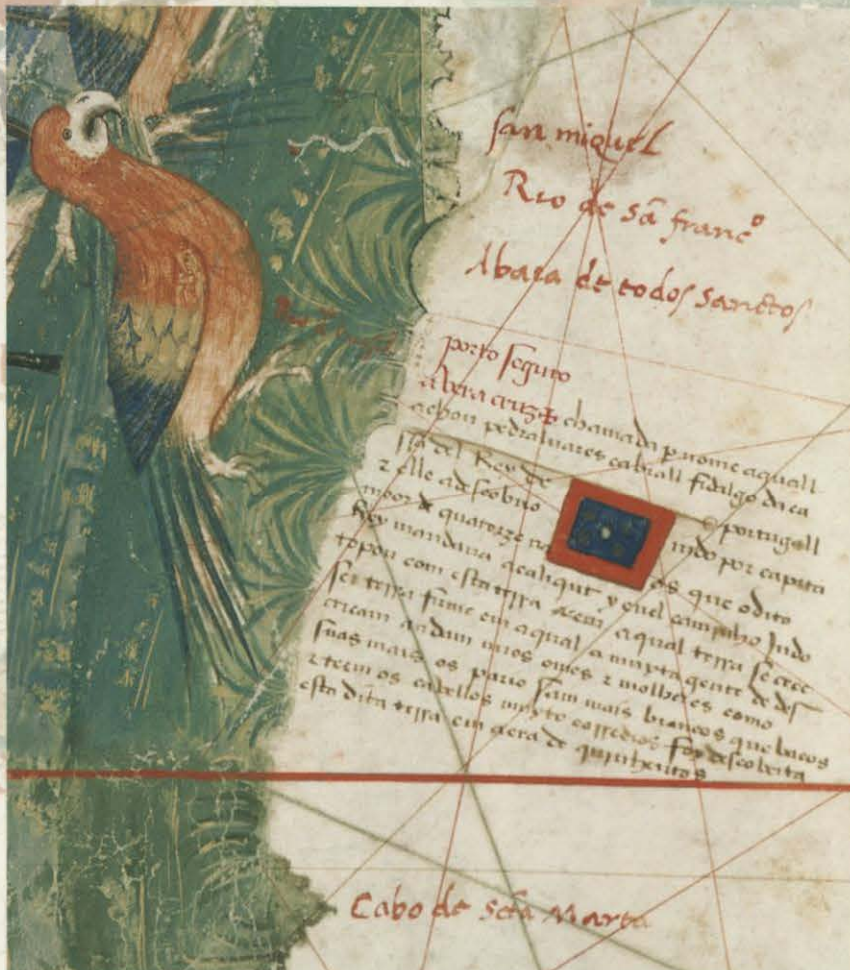 san miguel
Rio de sã franc⁰
Abaia de todos sanctos
porto seguro
a vera cruz chamada p nome aquall
achou pedraluares cabrall fidalgo da ca
ssa del Rey de portugall
z elle a descobrio indo por capita
moor de quatorze na os que o dito
Rey mandaua a caliqut y enel caminho Indo
topou com esta terra aqual terra se cree
ser terra firme em aqual a muyta gente de des
cream andam nuos omes z molheres como
suas mais os pario sam mais brancos que bacos
z teem os cabellos muyto corredios foy descoberta
esta dita terra em aera de quinhentos
Cabo de scta Marta